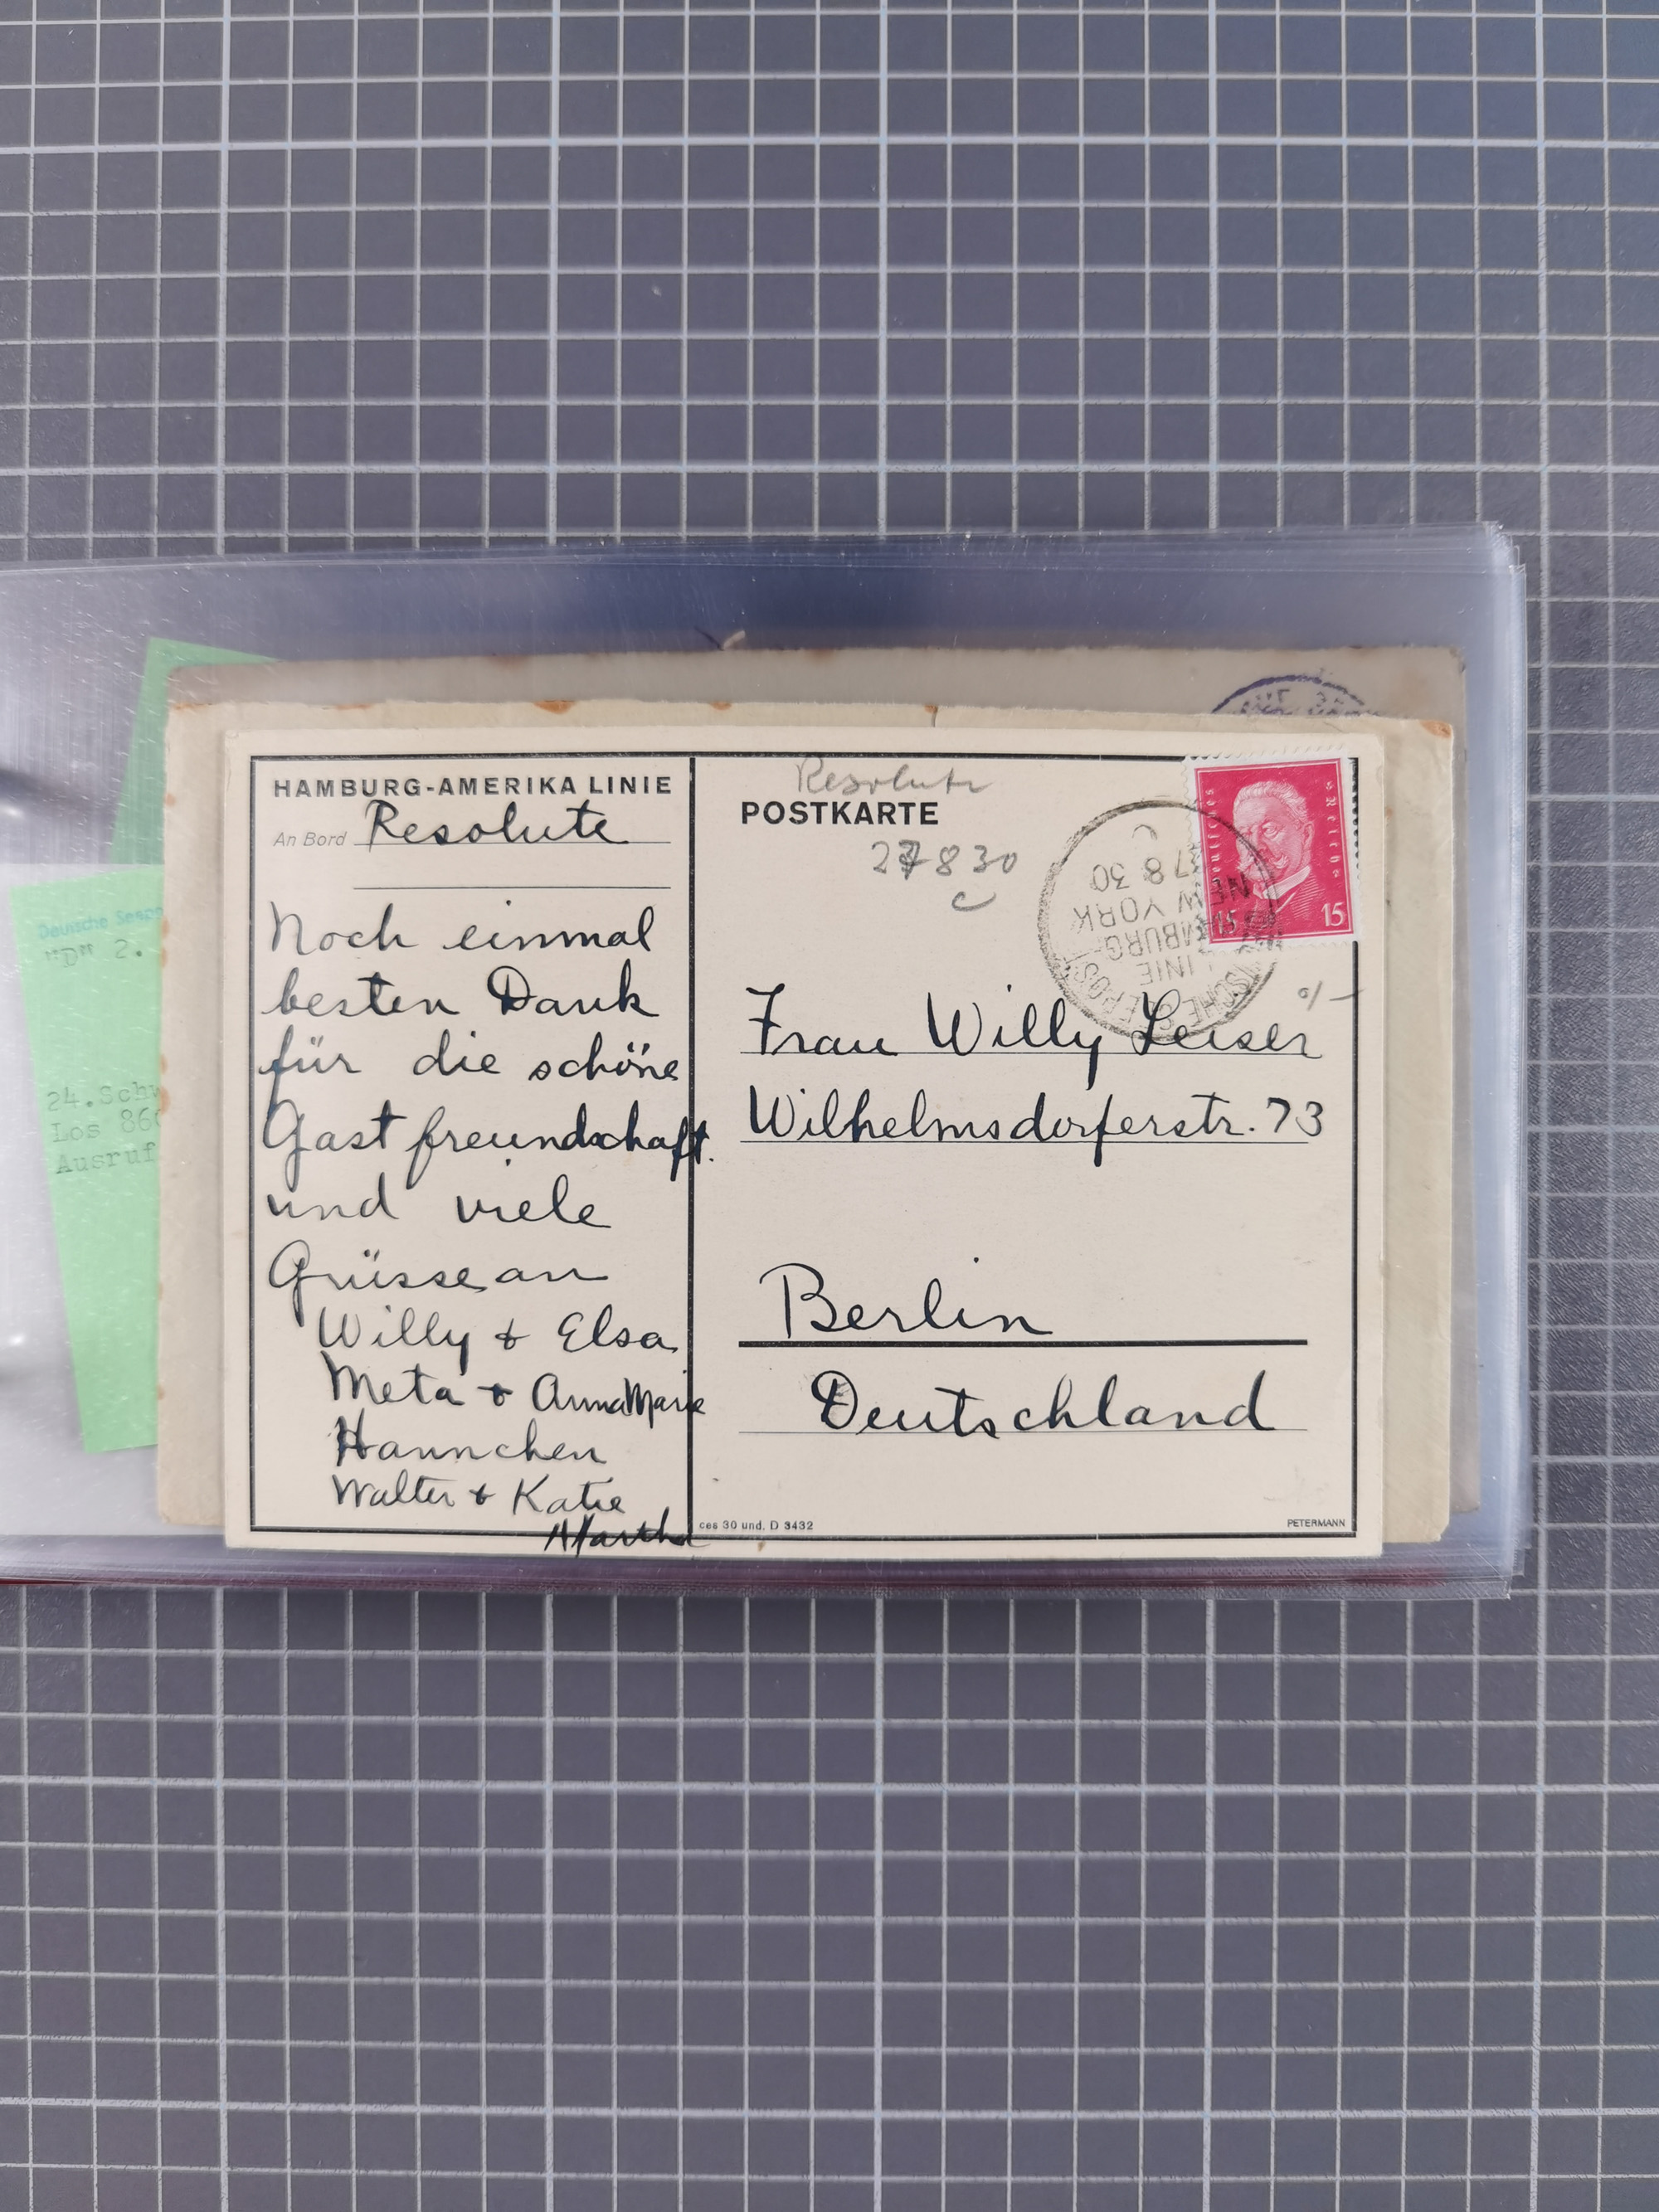 HAMBURG-AMERIKA LINIE
An Bord Resolute
Noch einmal
besten Dank
für die schöne
Gastfreundschaft.
und viele
Grüsse an
Willy & Elsa
Meta & AnnaMarie
Hannchen
Walter & Katie
Martha
Resolute
POSTKARTE
27 8 30
c
Deutsches Reich
15 15
SCHE SEEPOST
LINIE
HAMBURG-
NEW YORK
7 8 30
C
Frau Willy Leiser
Wilhelmsdorferstr. 73
Berlin
Deutschland
ces 30 und. D 3432
PETERMANN
Deutsche Seepo
"D" 2.
24.Schw
Los 860
Ausruf